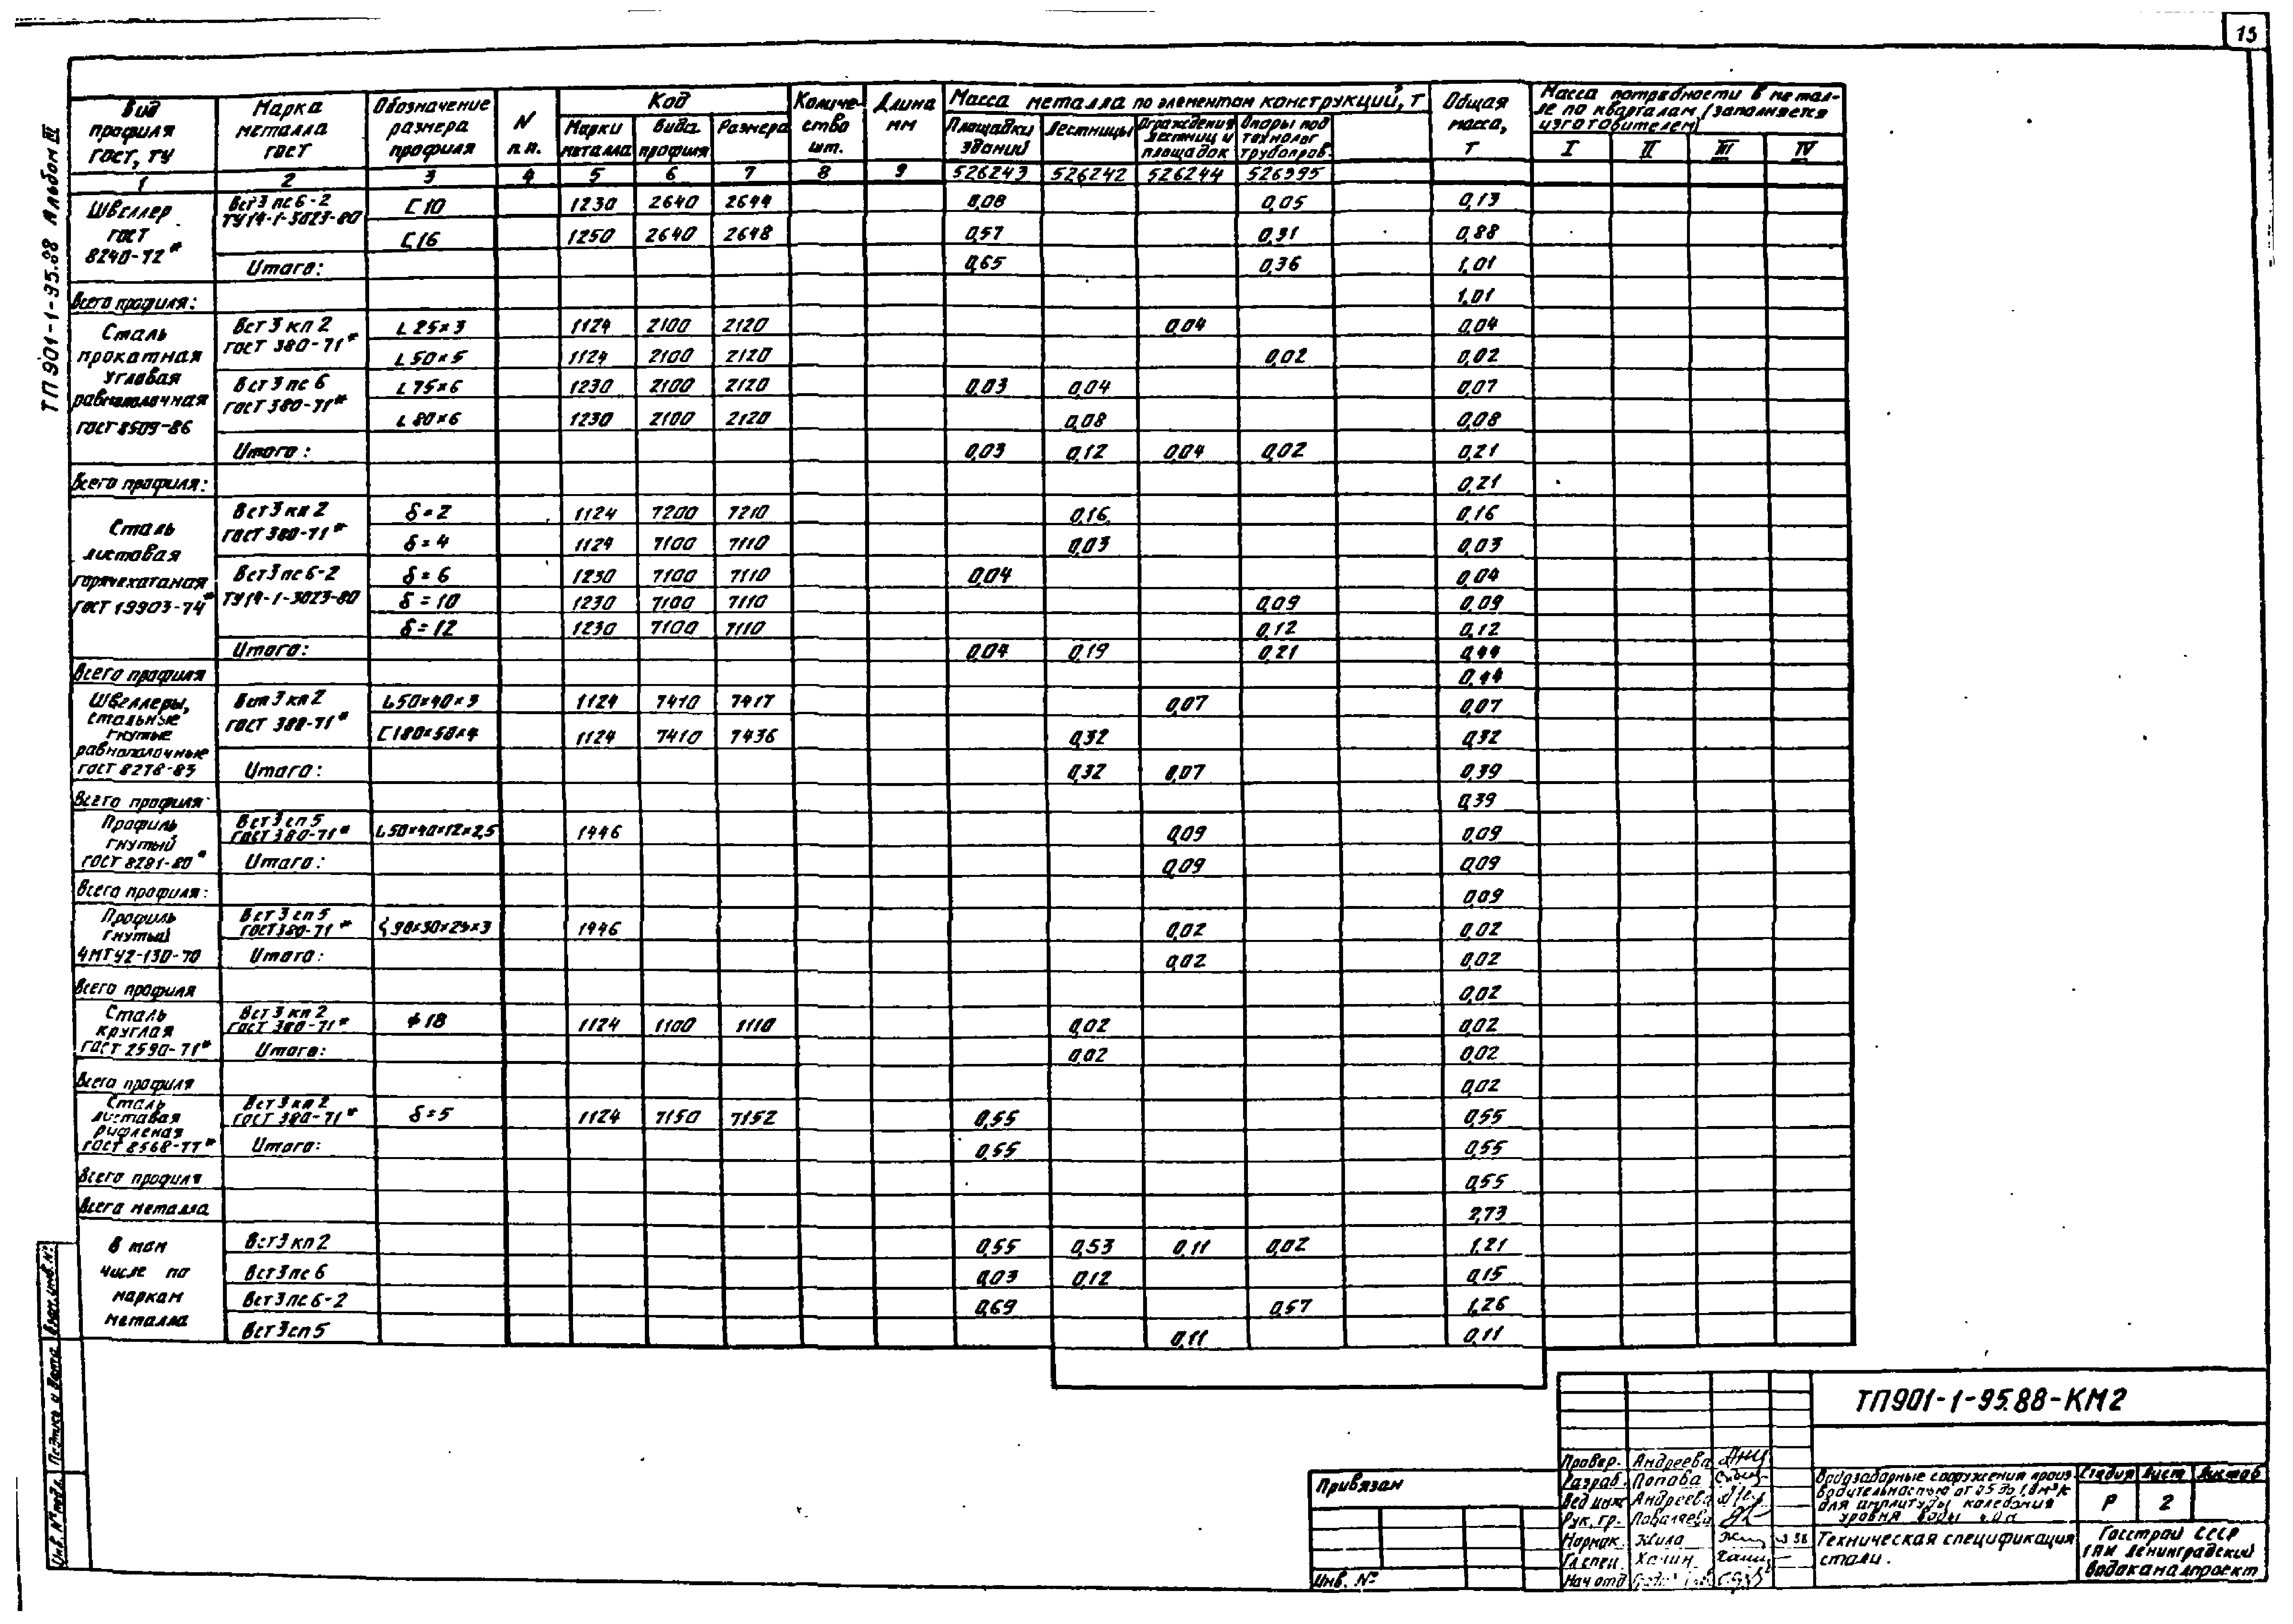 15
ТП 901-1-95.88 Альбом III
Вид профиля ГОСТ, ТУ | Марка металла ГОСТ | Обозначение размера профиля | N п.п. | Код | Количество шт. | Длина мм | Масса металла по элементам конструкций, т | Общая масса, т | Масса потребности в металле по кварталам (заполняется изготовителем)
Марки металла | Вида профиля | Размера | Площадки зданий | Лестницы | Ограждения лестниц и площадок | Опоры под технолог трубопров. | I | II | III | IV
1 2 3 4 5 6 7 8 9 526243 526242 526244 526395
Швеллер ГОСТ 8240-72*
Вст3 пс6-2 ТУ14-1-3023-80
С10 1230 2640 2644 0,08 0,05 0,13
С16 1230 2640 2648 0,57 0,31 0,88
Итого: 0,65 0,36 1,01
Всего профиля: 1,01
Сталь прокатная угловая равнополочная ГОСТ 8509-86
Вст3 кп2 ГОСТ 380-71*
L 25×3 1124 2100 2120 0,04 0,04
L 50×5 1124 2100 2120 0,02 0,02
Вст3 пс6 ГОСТ 380-71*
L 75×6 1230 2100 2120 0,03 0,04 0,07
L 80×6 1230 2100 2120 0,08 0,08
Итого: 0,03 0,12 0,04 0,02 0,21
Всего профиля: 0,21
Сталь листовая горячекатаная ГОСТ 19903-74*
Вст3 кп2 ГОСТ 380-71*
δ=2 1124 7200 7210 0,16 0,16
δ=4 1124 7100 7110 0,03 0,03
Вст3 пс6-2 ТУ14-1-3023-80
δ=6 1230 7100 7110 0,04 0,04
δ=10 1230 7100 7110 0,09 0,09
δ=12 1230 7100 7110 0,12 0,12
Итого: 0,04 0,19 0,21 0,44
Всего профиля 0,44
Швеллеры, стальные гнутые равнополочные ГОСТ 8278-83
Вст3 кп2 ГОСТ 380-71*
L50×40×3 1124 7410 7417 0,07 0,07
С180×50×4 1124 7410 7436 0,32 0,32
Итого: 0,32 0,07 0,39
Всего профиля: 0,39
Профиль гнутый ГОСТ 8281-80*
Вст3 сп5 ГОСТ 380-71*
L50×40×12×2,5 1446 0,09 0,09
Итого: 0,09 0,09
Всего профиля: 0,09
Профиль гнутый ЧМТУ2-130-70
Вст3 сп5 ГОСТ 380-71*
90×30×25×3 1446 0,02 0,02
Итого: 0,02 0,02
Всего профиля 0,02
Сталь круглая ГОСТ 2590-71*
Вст3 кп2 ГОСТ 380-71*
ф18 1124 1100 1110 0,02 0,02
Итого: 0,02 0,02
Всего профиля 0,02
Сталь листовая рифленая ГОСТ 8568-77*
Вст3 кп2 ГОСТ 380-71*
δ=5 1124 7150 7152 0,55 0,55
Итого: 0,55 0,55
Всего профиля 0,55
Всего металла 2,73
В том числе по маркам металла
Вст3 кп2 0,55 0,53 0,11 0,02 1,21
Вст3 пс6 0,03 0,12 0,15
Вст3 пс6-2 0,69 0,57 1,26
Вст3 сп5 0,11 0,11
Взам. инв. №
Подпись и дата
Инв. № подл.
ТП901-1-95.88-КМ2
Привязан
Инв. №
Провер. Андреева
Разраб. Попова
Вед инж Андреева
Рук. гр. Поваляева
Нормок. Жила
Гл спец. Ханин
Нач отд
Водозаборные сооружения производительностью от 0,5 до 1,0 м³/с для амплитуды колебания уровня воды
Стадия Лист Листов
Р 2
Техническая спецификация стали.
Госстрой СССР
ГПИ Ленинградский
Водоканалпроект